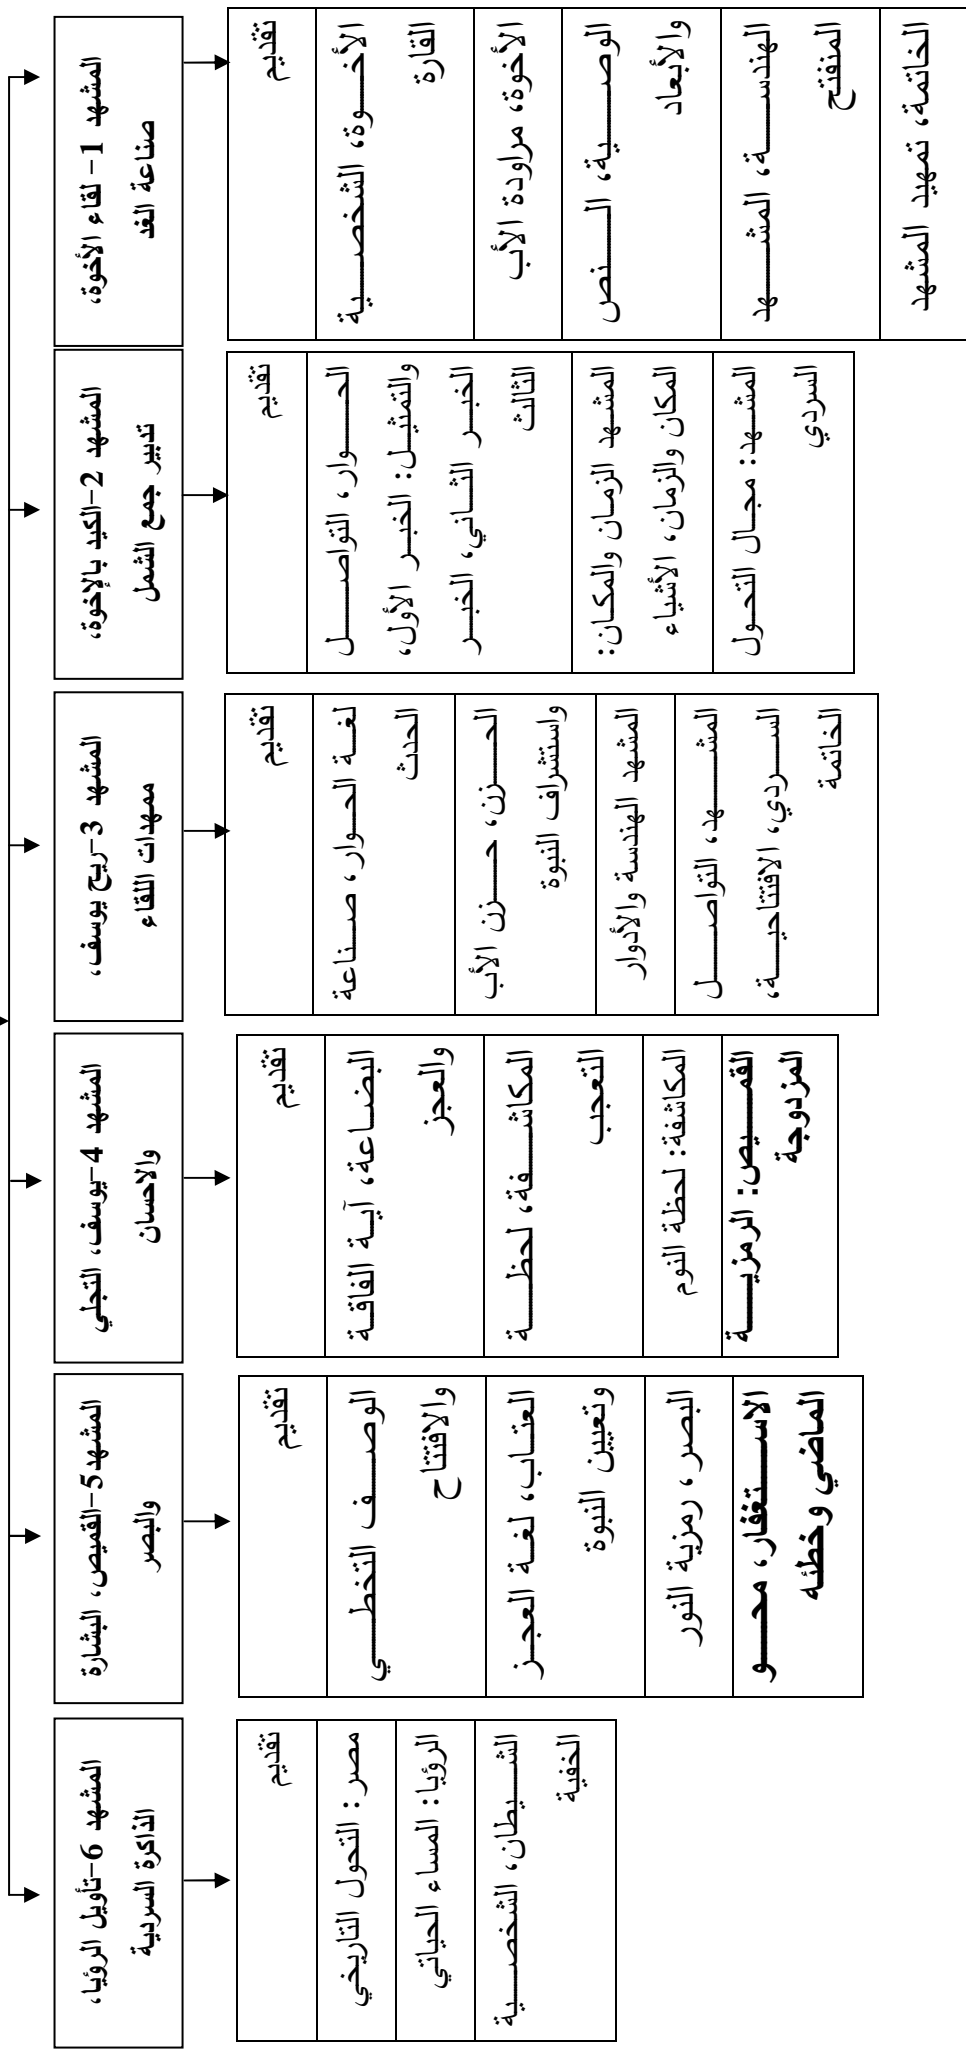 المشهد 1- لقاء الأخوة،
صناعة الغد
تقديم
الأخوة، الشخصية
القارة
الأخوة، مراودة الأب
الوصية، النص
والأبعاد
الهندسة، المشهد
المنفتح
الخاتمة، تمهيد المشهد
المشهد 2-الكيد بالإخوة،
تدبير جمع الشمل
تقديم
الحوار، التواصل
والتمثيل: الخبر الأول،
الخبر الثاني، الخبر
الثالث
المشهد الزمان والمكان:
المكان والزمان، الأشياء
المشهد: مجال التحول
السردي
المشهد 3-ريح يوسف،
ممهدات اللقاء
تقديم
لغة الحوار، صناعة
الحدث
الحزن، حزن الأب
واستشراف النبوة
المشهد الهندسة والأدوار
المشهد، التواصل
السردي، الافتتاحية،
الخاتمة
المشهد 4-يوسف، التجلي
والاحسان
تقديم
البضاعة، آية الفاقة
والعجز
المكاشفة، لحظة
التعجب
المكاشفة: لحظة النوم
القميص: الرمزية
المزدوجة
المشهد5-القميص، البشارة
والبصر
تقديم
الوصف التخطي
والافتتاح
العتاب، لغة العجز
وتعيين النبوة
البصر، رمزية النور
الاستغفار، محو
الماضي وخطئه
المشهد 6-تأويل الرؤيا،
الذاكرة السردية
تقديم
مصر: التحول التاريخي
الرؤيا: المساء الحياتي
الشيطان، الشخصية
الخفية